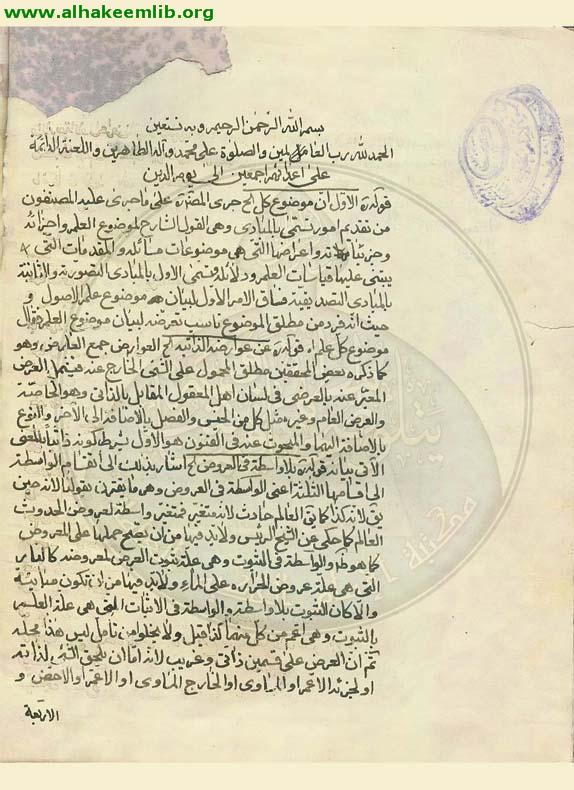 www.alhakeemlib.org
بسم الله الرحمن الرحيم وبه نستعين
الحمد لله رب العالمين والصلوة على محمد وآله الطاهرين واللعنة الدائمة
على اعدائهم اجمعين الى يوم الدين
قوله الاول ان موضوع كل الخ جرى المصنف ره على ما جرى عليه المصنفون
من تقديم امور تسمى بالمبادى وهى القول الشارح لموضوع العلم واجزائه
وجزئياته واعراضها التى هى موضوعات مسائله والمقدمات التى
يبتنى عليها قياسات العلم ودلائله وتسمى الاول بالمبادى التصورية والثانية
بالمبادى التصديقية فساق الامر الاول لبيان موضوع علم الاصول و
حيث انه فرد من مطلق الموضوع ناسب تعرضه لبيان موضوع العلم فقال
موضوع كل علم اه قوله عن عوارضه الذاتية الخ العوارض جمع العارض وهو
كما ذكره بعض المحققين مطلق المحمول على الشئ الخارج عنه فيشمل العرض
المعبر عنه بالعرضى فى لسان اهل المعقول المقابل بالذاتى وهو الخاصة
والعرض العام وغيره مثل كل من الجنس والفصل بالاضافة الى الآخر والنوع
بالاضافة اليهما والمبحوث عنه فى الفنون هو الاول بشرط كونه ذاتيا بالمعنى
الآتى بيانه قوله بلا واسطة فى العروض الخ اشار بذلك الى انقسام الواسطة
الى اقسامها الثلثة اعنى الواسطة فى العروض وهى ما يقترن بقولنا لانه حين
يق لانه كذا كما يق العالم حادث لانه متغير فمتغير واسطة لعروض الحدوث
العالم كما حكى عن الشيخ الرئيس ولا بد فيها من ان يصح حملها على المعروض
كما هو ظم والواسطة فى الثبوت وهى علة ثبوت العرض لمعروضه كالنار
التى هى علة عروض الحرارة على الماء ولا بد فيها من ان تكون مباينة
والا كان الثبوت بلا واسطة والواسطة فى الاثبات التى هى علة العلم
بالثبوت وهى اعم من كل منهما كذا قيل ولا يخلو من تأمل ليس هذا محله
ثم ان العرض على قسمين ذاتى وغريب لانه اما ان يلحق الشئ لذاته
او لجزئه الاعم او المساوى او الخارج المساوى او الاعم او الاخص و
الاربعة